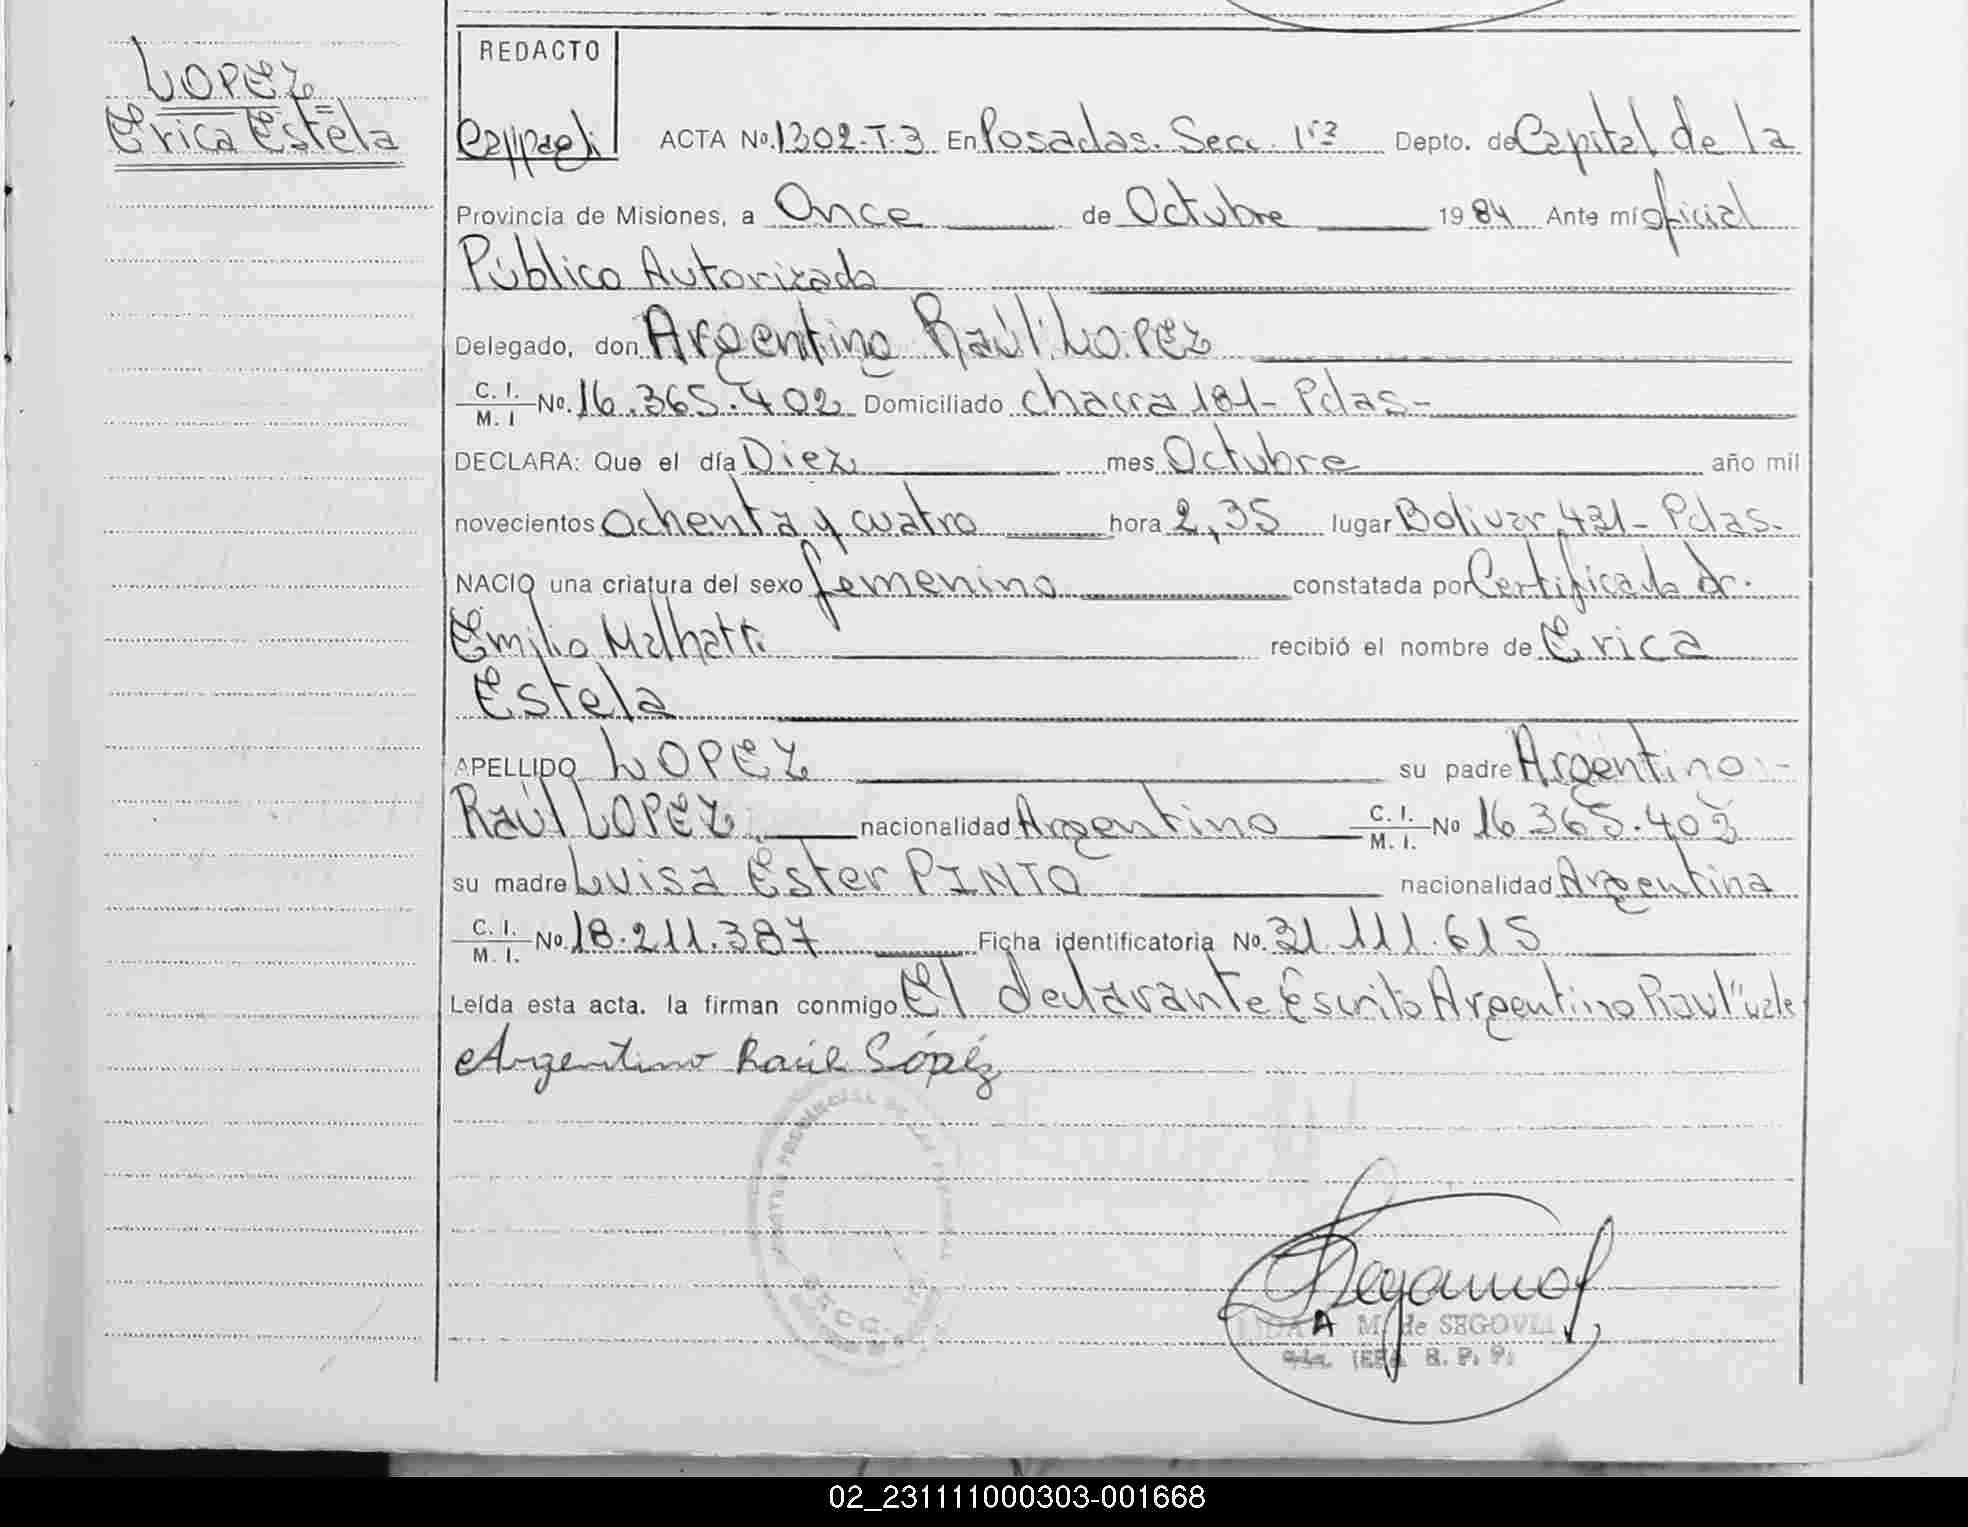 LOPEZ
Erica Estela
REDACTO
ACTA No. 1302-T-3 En Posadas. Secc. 1ra Depto. de Capital de la
Provincia de Misiones, a Once de Octubre 1984 Ante mí oficial
Público Autorizado
Delegado, don Argentino Raúl LOPEZ
C. I.
M. I No. 16.365.402 Domiciliado chacra 181- Pdas-
DECLARA: Que el día Diez mes Octubre año mil
novecientos ochenta y cuatro hora 2,35 lugar Bolivar 431- Pdas.
NACIO una criatura del sexo femenino constatada por Certificado dr.
Emilio Malhatti recibió el nombre de Erica
Estela
APELLIDO LOPEZ su padre Argentino -
Raúl LOPEZ nacionalidad Argentino C. I. M. I. No 16.365.402
su madre Luisa Ester PINTO nacionalidad Argentina
C. I. M. I. No. 18.211.387 Ficha identificatoria No. 31.111.615
Leída esta acta. la firman conmigo El declarante Escrito Argentino Raul "vale
Argentino Raúl López
A M. de SEGOVIA
R. P. P.
02_231111000303-001668